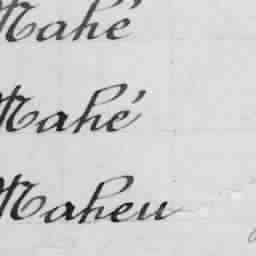 Mahé
Mahé
Maheu